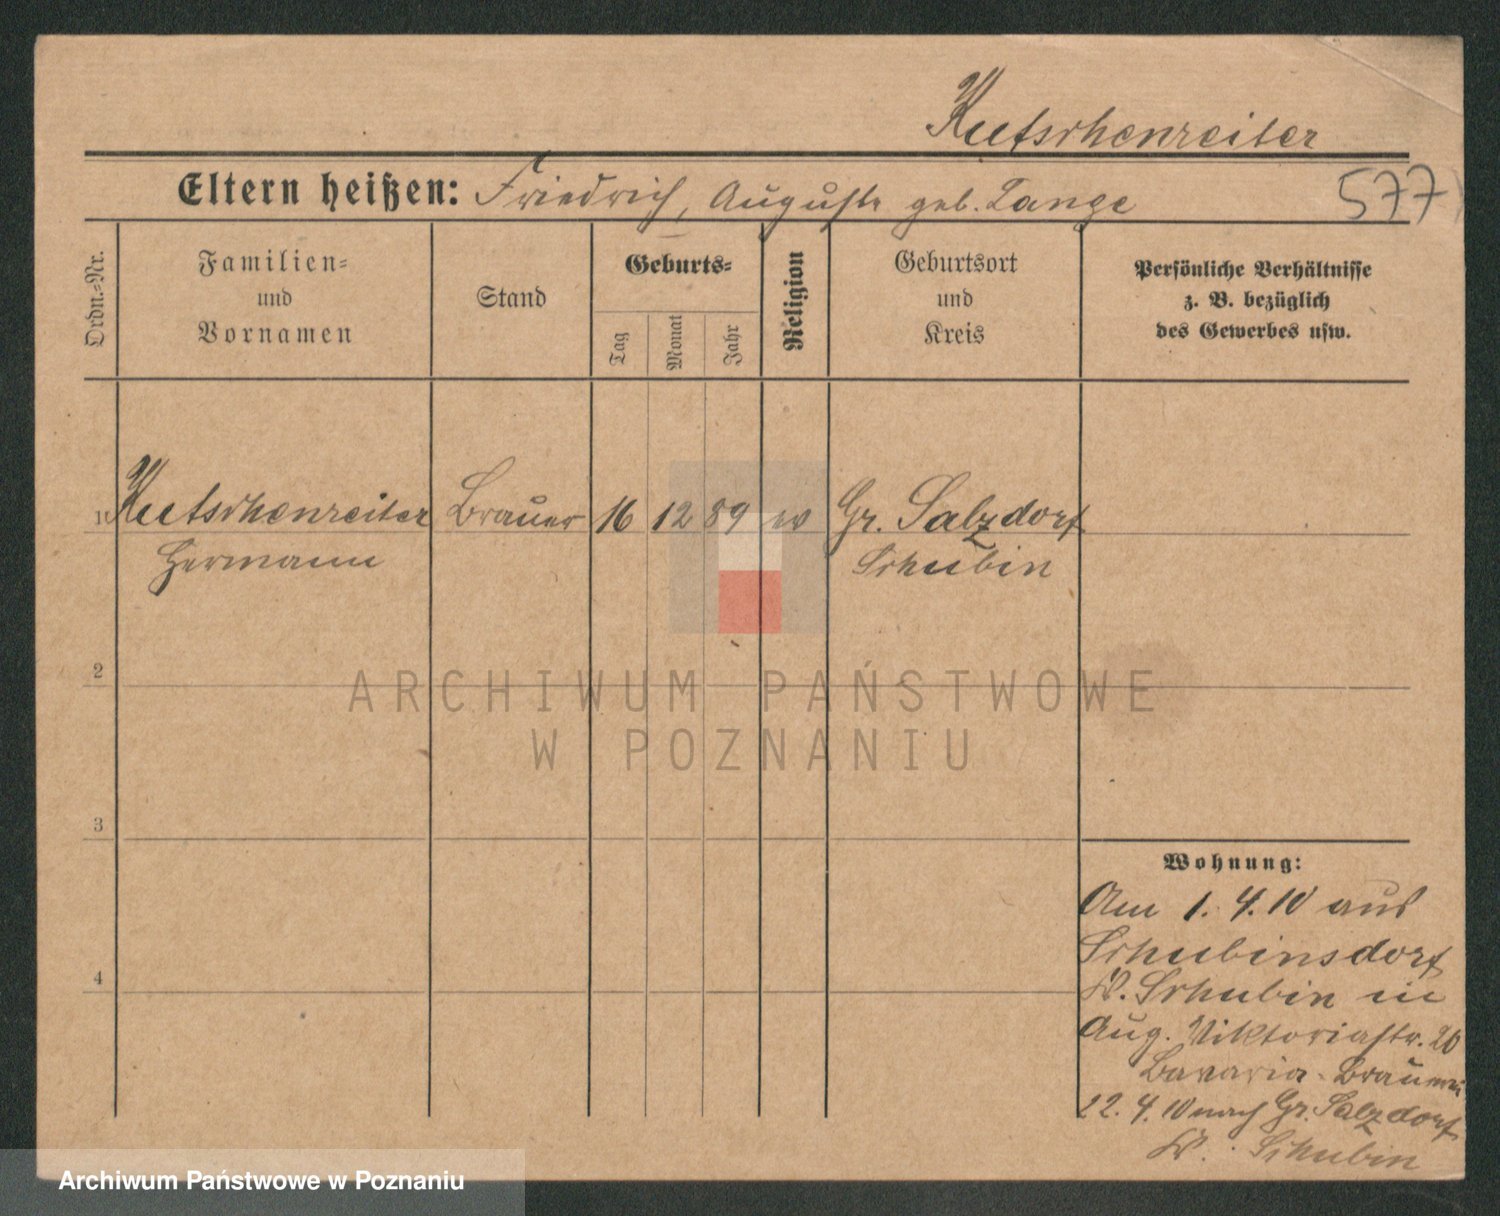 Kutschenreiter
Eltern heißen: Friedrich, Auguste geb. Lange
577
Ordn.-Nr.
Familien-
und
Vornamen
Stand
Geburts-
Tag
Monat
Jahr
Religion
Geburtsort
und
Kreis
Persönliche Verhältnisse
z. B. bezüglich
des Gewerbes usw.
1 Kutschenreiter Brauer 16 12 89 ev Gr. Salzdorf
Hermann Schubin
2
3
4
Wohnung:
Am 1. 4. 10 aus
Schubinsdorf
Kr. Schubin in
Aug. Viktoriastr. 20
Bavaria-Brauerei
22. 4. 10 nach Gr. Salzdorf
Kr. Schubin
ARCHIWUM PAŃSTWOWE
W POZNANIU
Archiwum Państwowe w Poznaniu